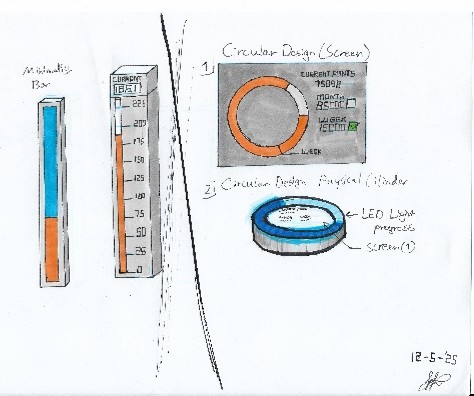 Minimalist
Bar
CURRENT
225
200
175
150
125
100
75
50
25
0
Circular Design (Screen)
1)
CURRENT POINTS
MONTH
WEEK
WEEK
2) Circular Design Physical Cilinder
LED Light
progress
Screen (1)
12-5-'25